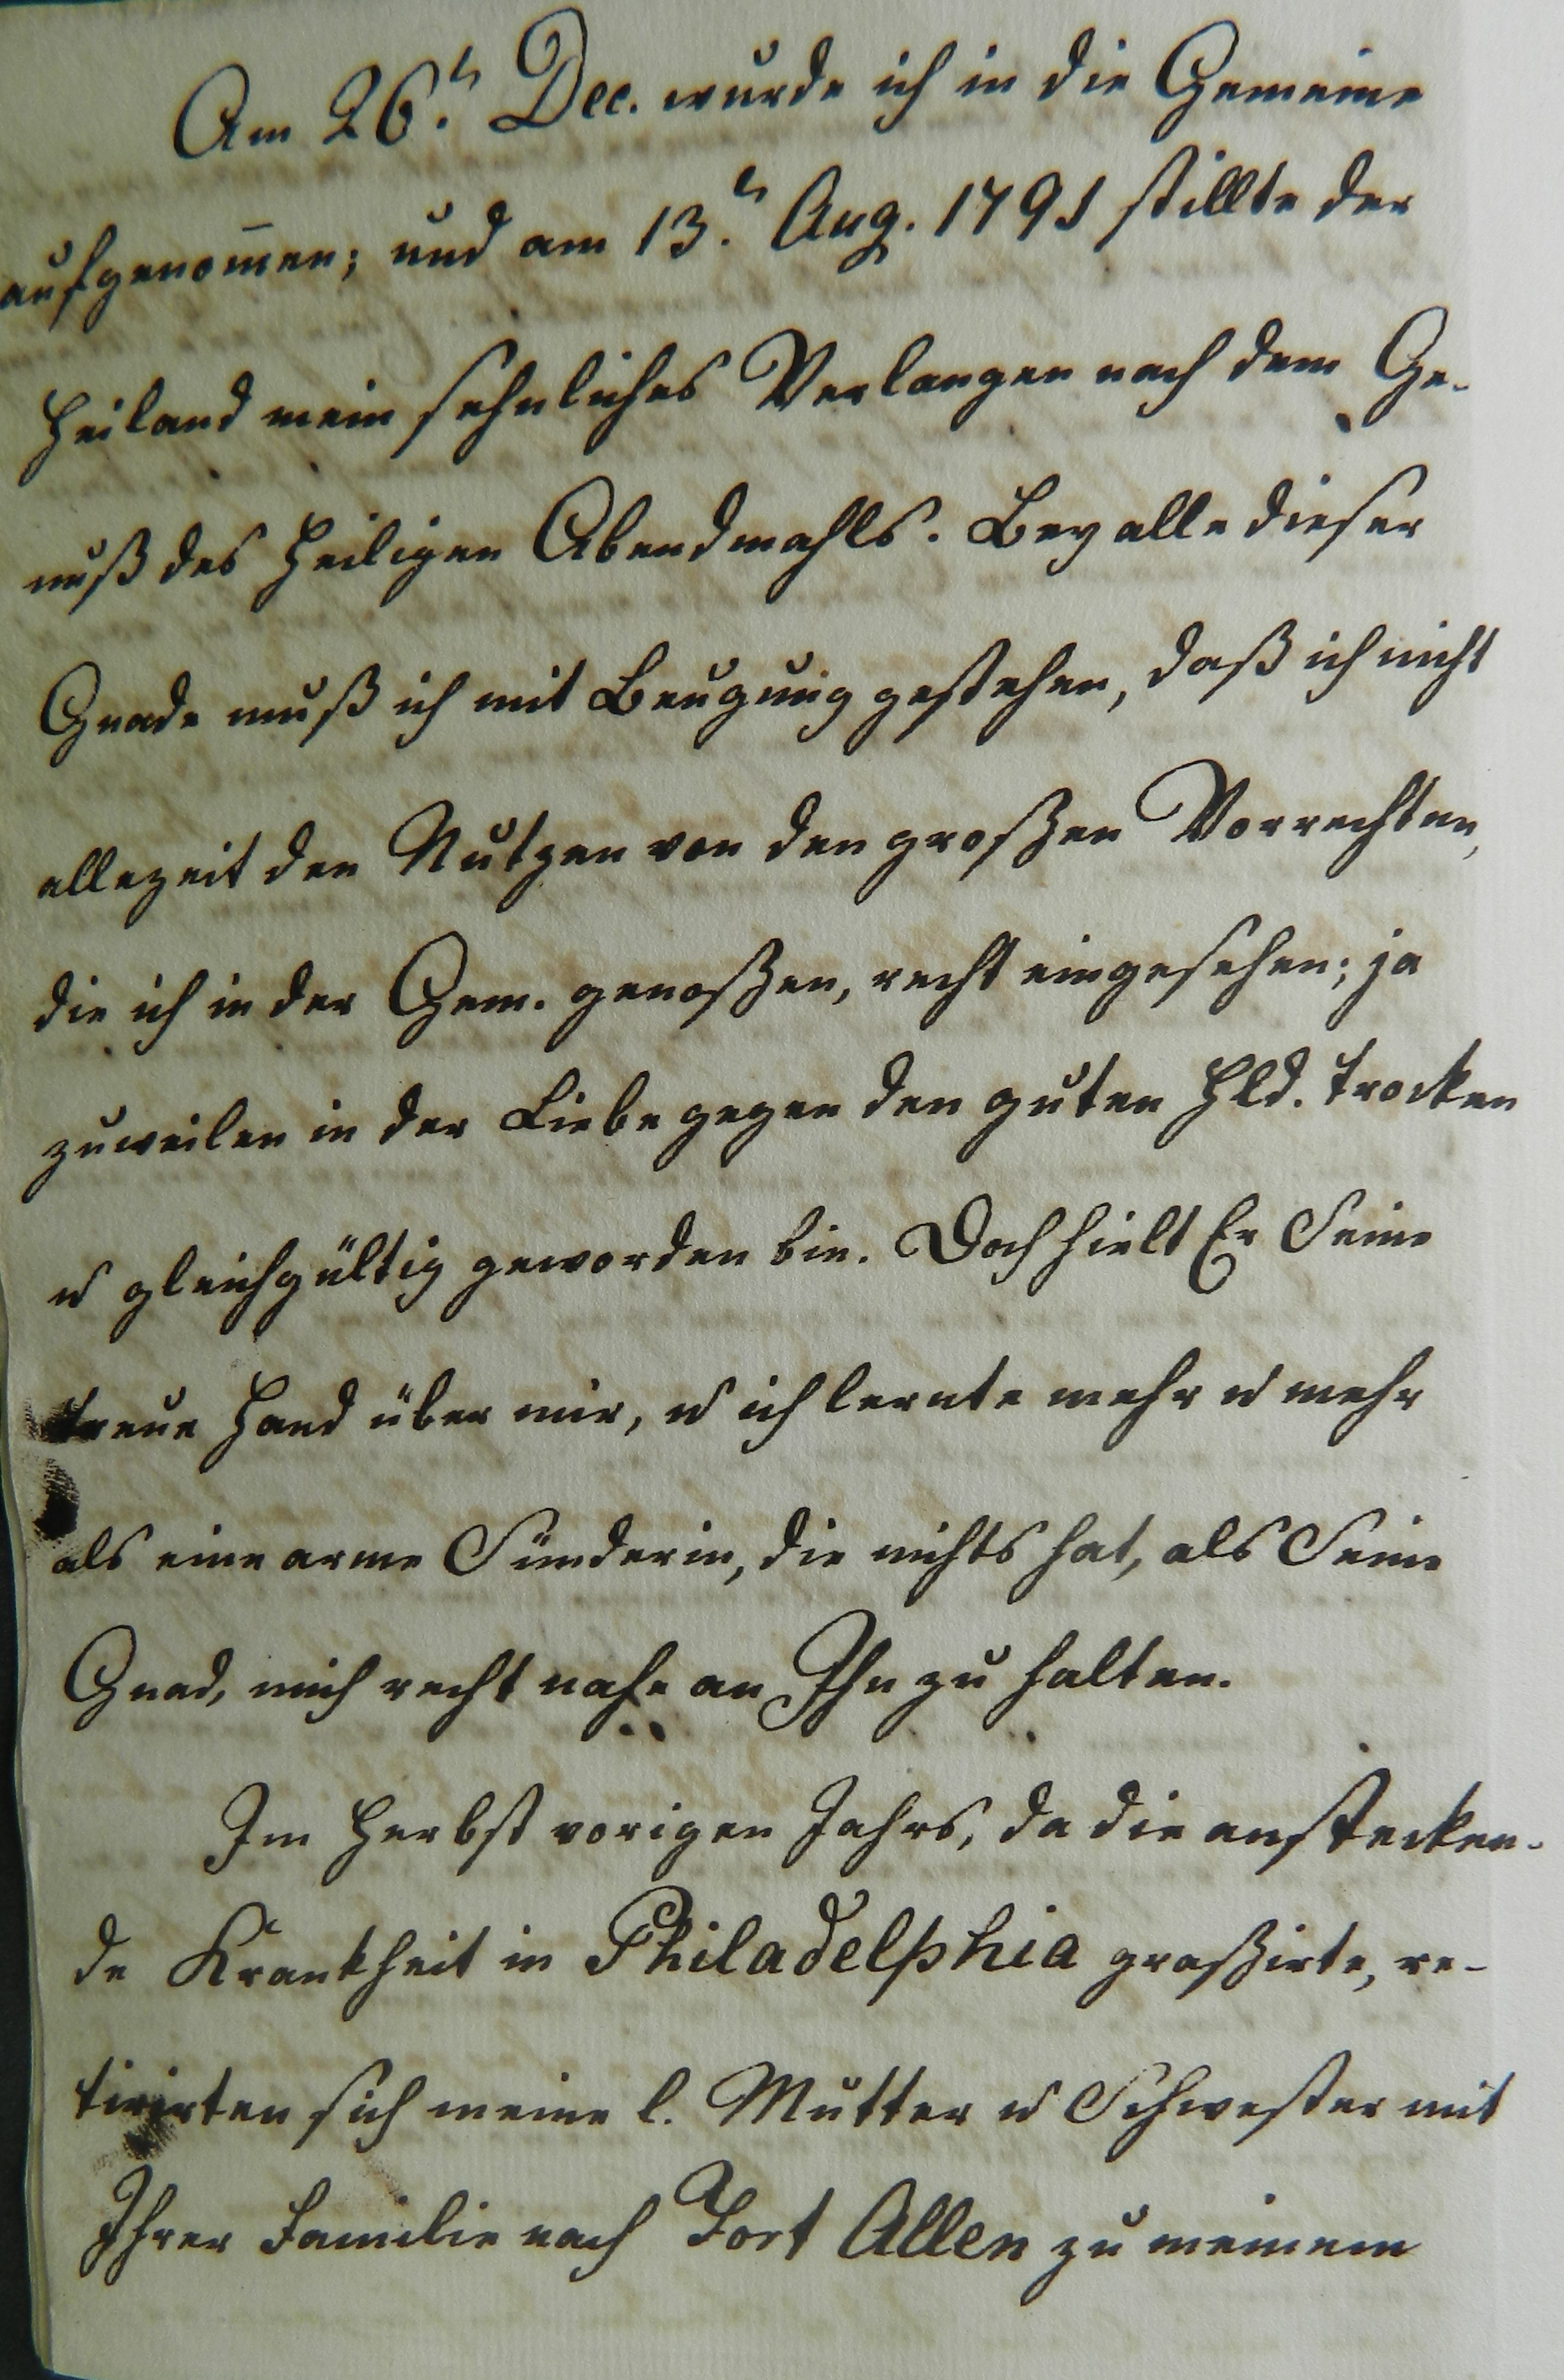 Am 26.ⁿ Dec. wurde ich in die Gemeine
aufgenom̅en; und am 13.ⁿ Aug. 1791 stillte der
Heiland mein sehnliches Verlangen nach dem Ge-
nuß des Heiligen Abendmahls. Bey alle dieser
Gnade muß ich mit Beugung gestehen, daß ich nicht
allezeit den Nutzen von den großen Vorrechten,
die ich in der Gem. genoßen, recht eingesehen; ja
zuweilen in der Liebe gegen den guten Hld. trocken
u gleichgültig geworden bin. Doch hielt Er Seine
treue Hand über mir, u ich lernte mehr u mehr
als eine arme Sünderin, die nichts hat, als Seine
Gnad, mich recht nahe an Ihn zu halten.
Im Herbst vorigen Jahrs, da die anstecken-
de Krankheit in Philadelphia graßirte, re-
tirirten sich meine l. Mutter u Schwester mit
Ihrer Familie nach Fort Allen zu meinem